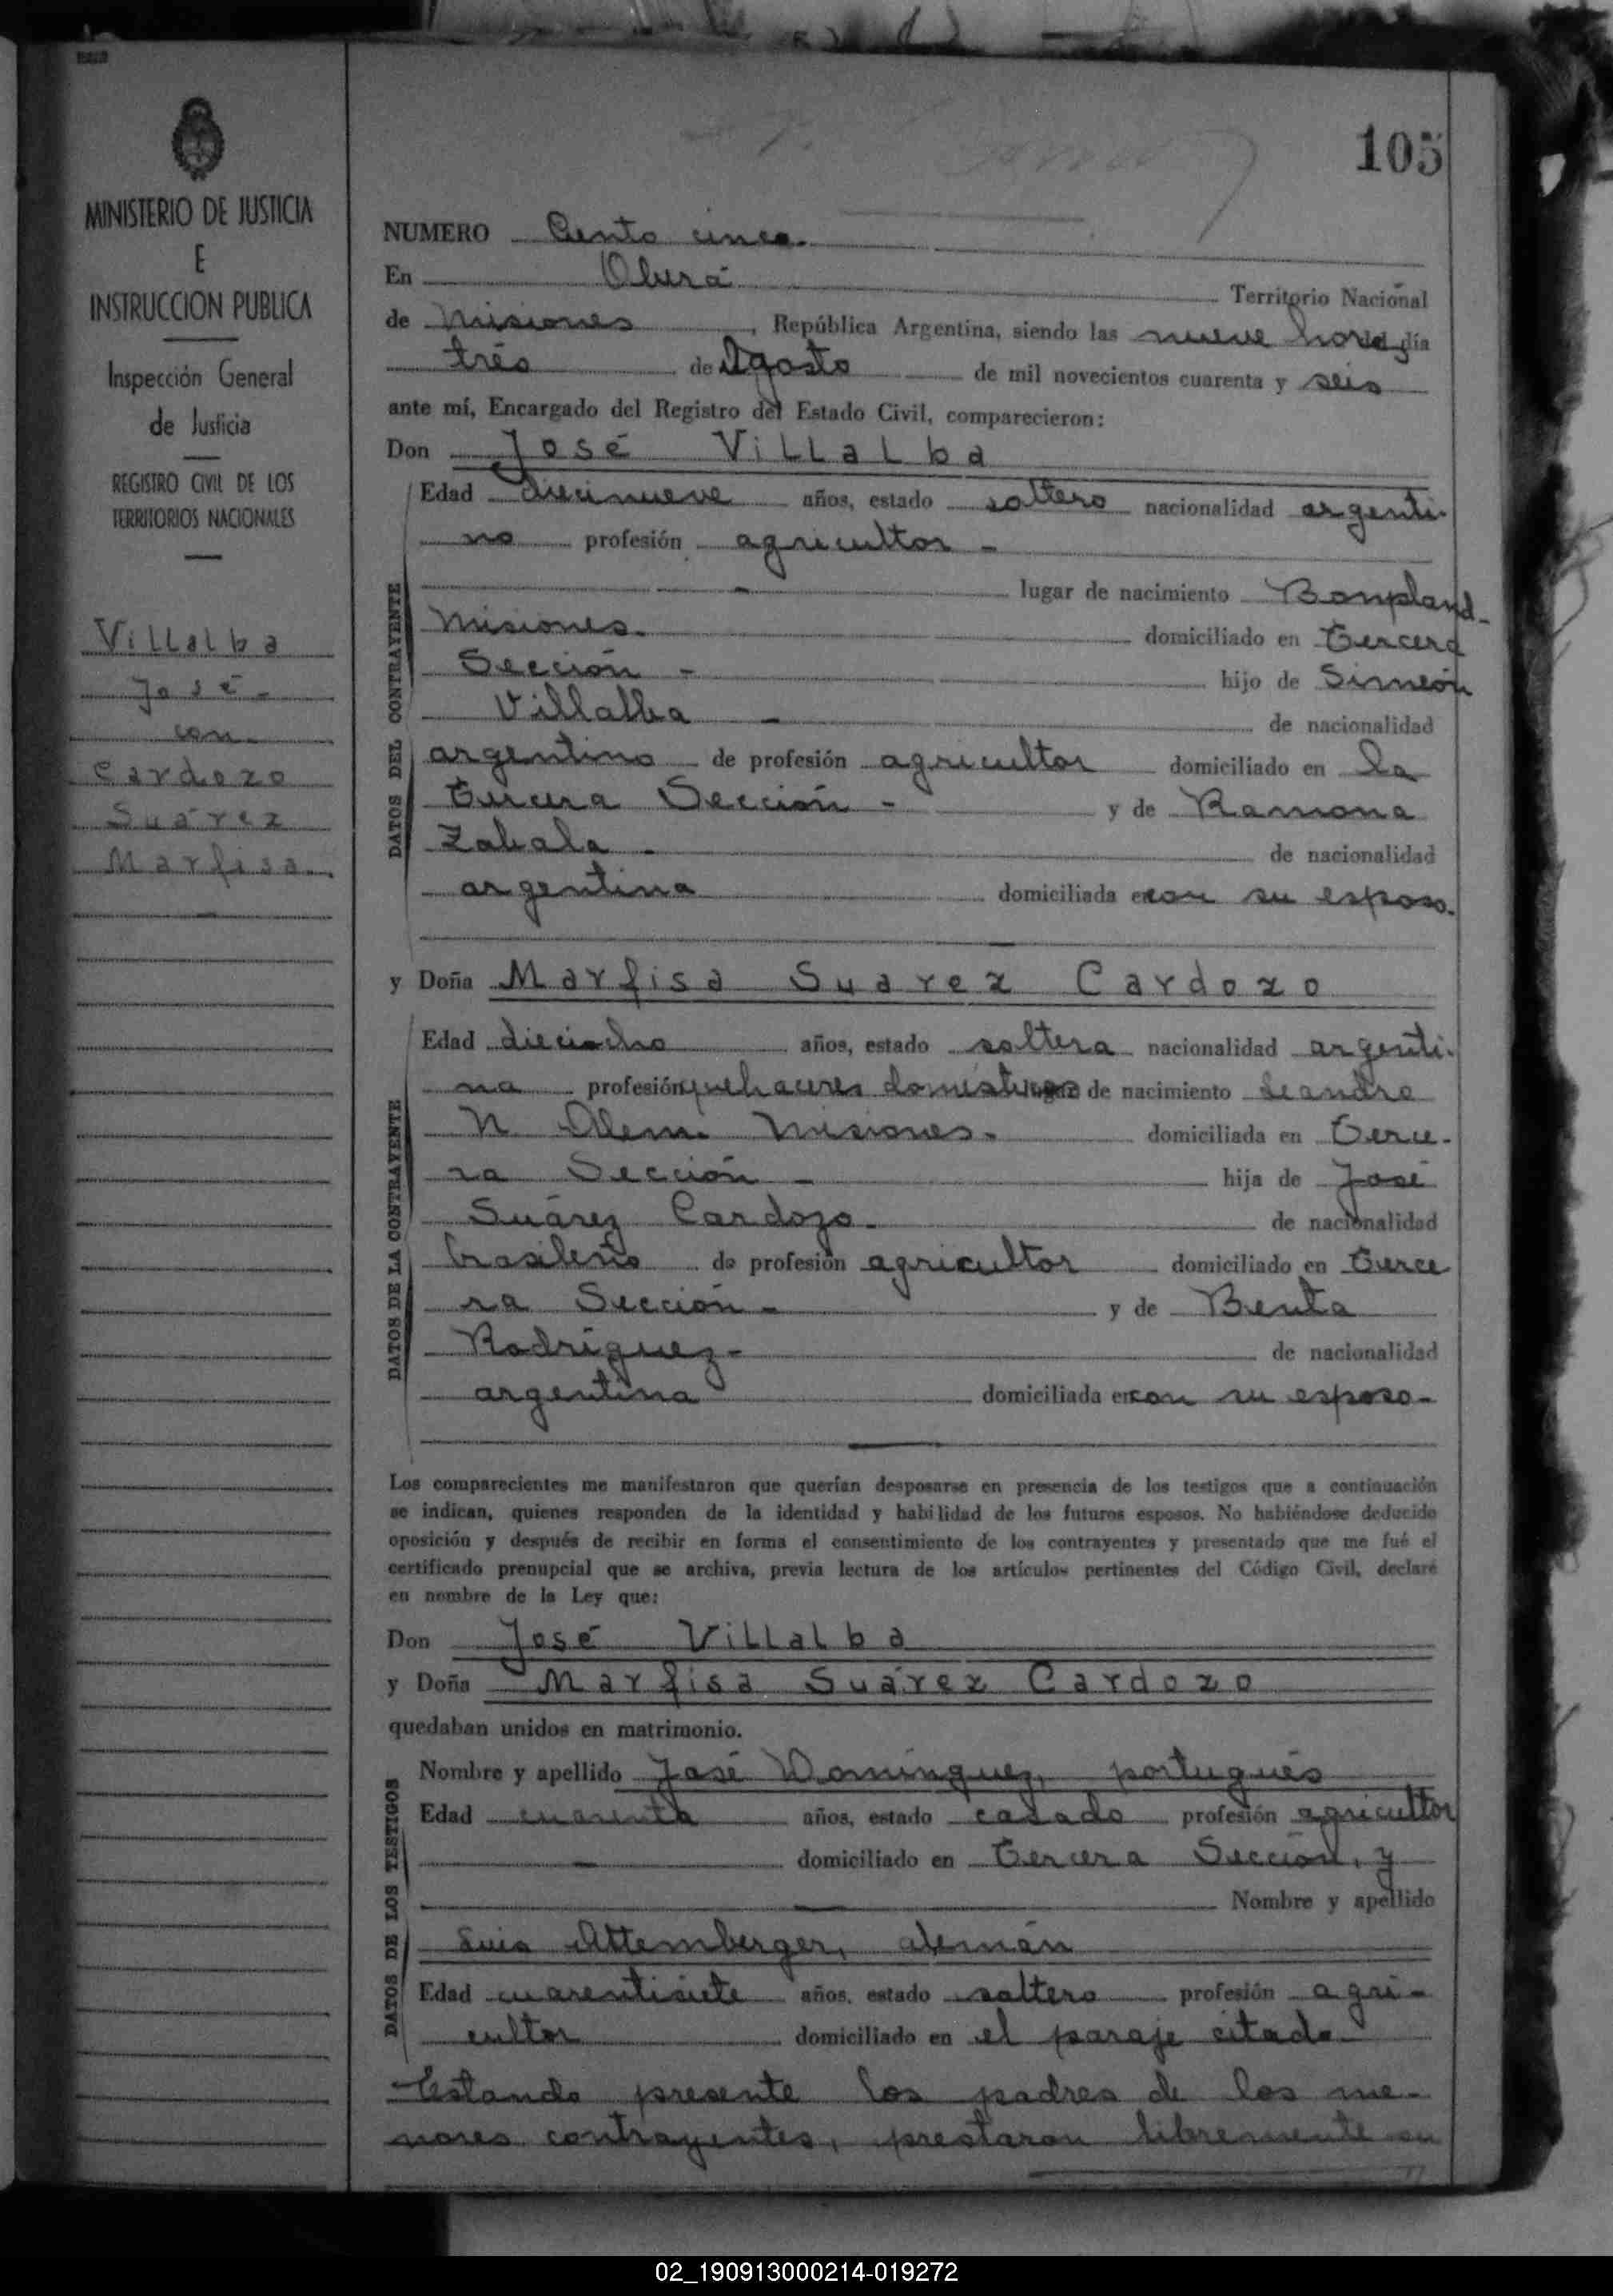 105
MINISTERIO DE JUSTICIA
E
INSTRUCCION PUBLICA
Inspección General
de Justicia
REGISTRO CIVIL DE LOS
TERRITORIOS NACIONALES
Villalba
José -
con -
Cardozo
Suárez
Marfisa.
NUMERO Ciento cinco.
En Oberá Territorio Nacional
de Misiones, República Argentina, siendo las nueve horas, día
trés de Agosto de mil novecientos cuarenta y seis
ante mí, Encargado del Registro del Estado Civil, comparecieron:
Don José Villalba
DATOS DEL CONTRAYENTE
Edad diecinueve años, estado soltero nacionalidad argenti-
no profesión agricultor -
- lugar de nacimiento Bonpland -
Misiones. domiciliado en Tercera
Sección - hijo de Simeón
Villalba - de nacionalidad
argentino de profesión agricultor domiciliado en la
Tercera Sección - y de Ramona
Zabala - de nacionalidad
argentina domiciliada en con su esposo.
y Doña Marfisa Suarez Cardozo
DATOS DE LA CONTRAYENTE
Edad dieciocho años, estado soltera nacionalidad argenti-
na profesión quehaceres domésticos lugar de nacimiento Leandro
N. Alem. Misiones. domiciliada en Terce-
ra Sección - hija de José
Suárez Cardozo. de nacionalidad
brasileño de profesión agricultor domiciliado en Terce
ra Sección - y de Benta
Rodríguez - de nacionalidad
argentina domiciliada en con su esposo -
Los comparecientes me manifestaron que querían desposarse en presencia de los testigos que a continuación
se indican, quienes responden de la identidad y habilidad de los futuros esposos. No habiéndose deducido
oposición y después de recibir en forma el consentimiento de los contrayentes y presentado que me fué el
certificado prenupcial que se archiva, previa lectura de los artículos pertinentes del Código Civil, declaré
en nombre de la Ley que:
Don José Villalba
y Doña Marfisa Suárez Cardozo
quedaban unidos en matrimonio.
DATOS DE LOS TESTIGOS
Nombre y apellido José Domínguez, portugués
Edad cuarenta años, estado casado profesión agricultor
- domiciliado en Tercera Sección, y
Nombre y apellido
Luis Attemberger, alemán
Edad cuarentisiete años, estado soltero profesión agri-
cultor domiciliado en el paraje citado
Estando presente los padres de los me-
nores contrayentes, prestaron libremente su
02_190913000214-019272